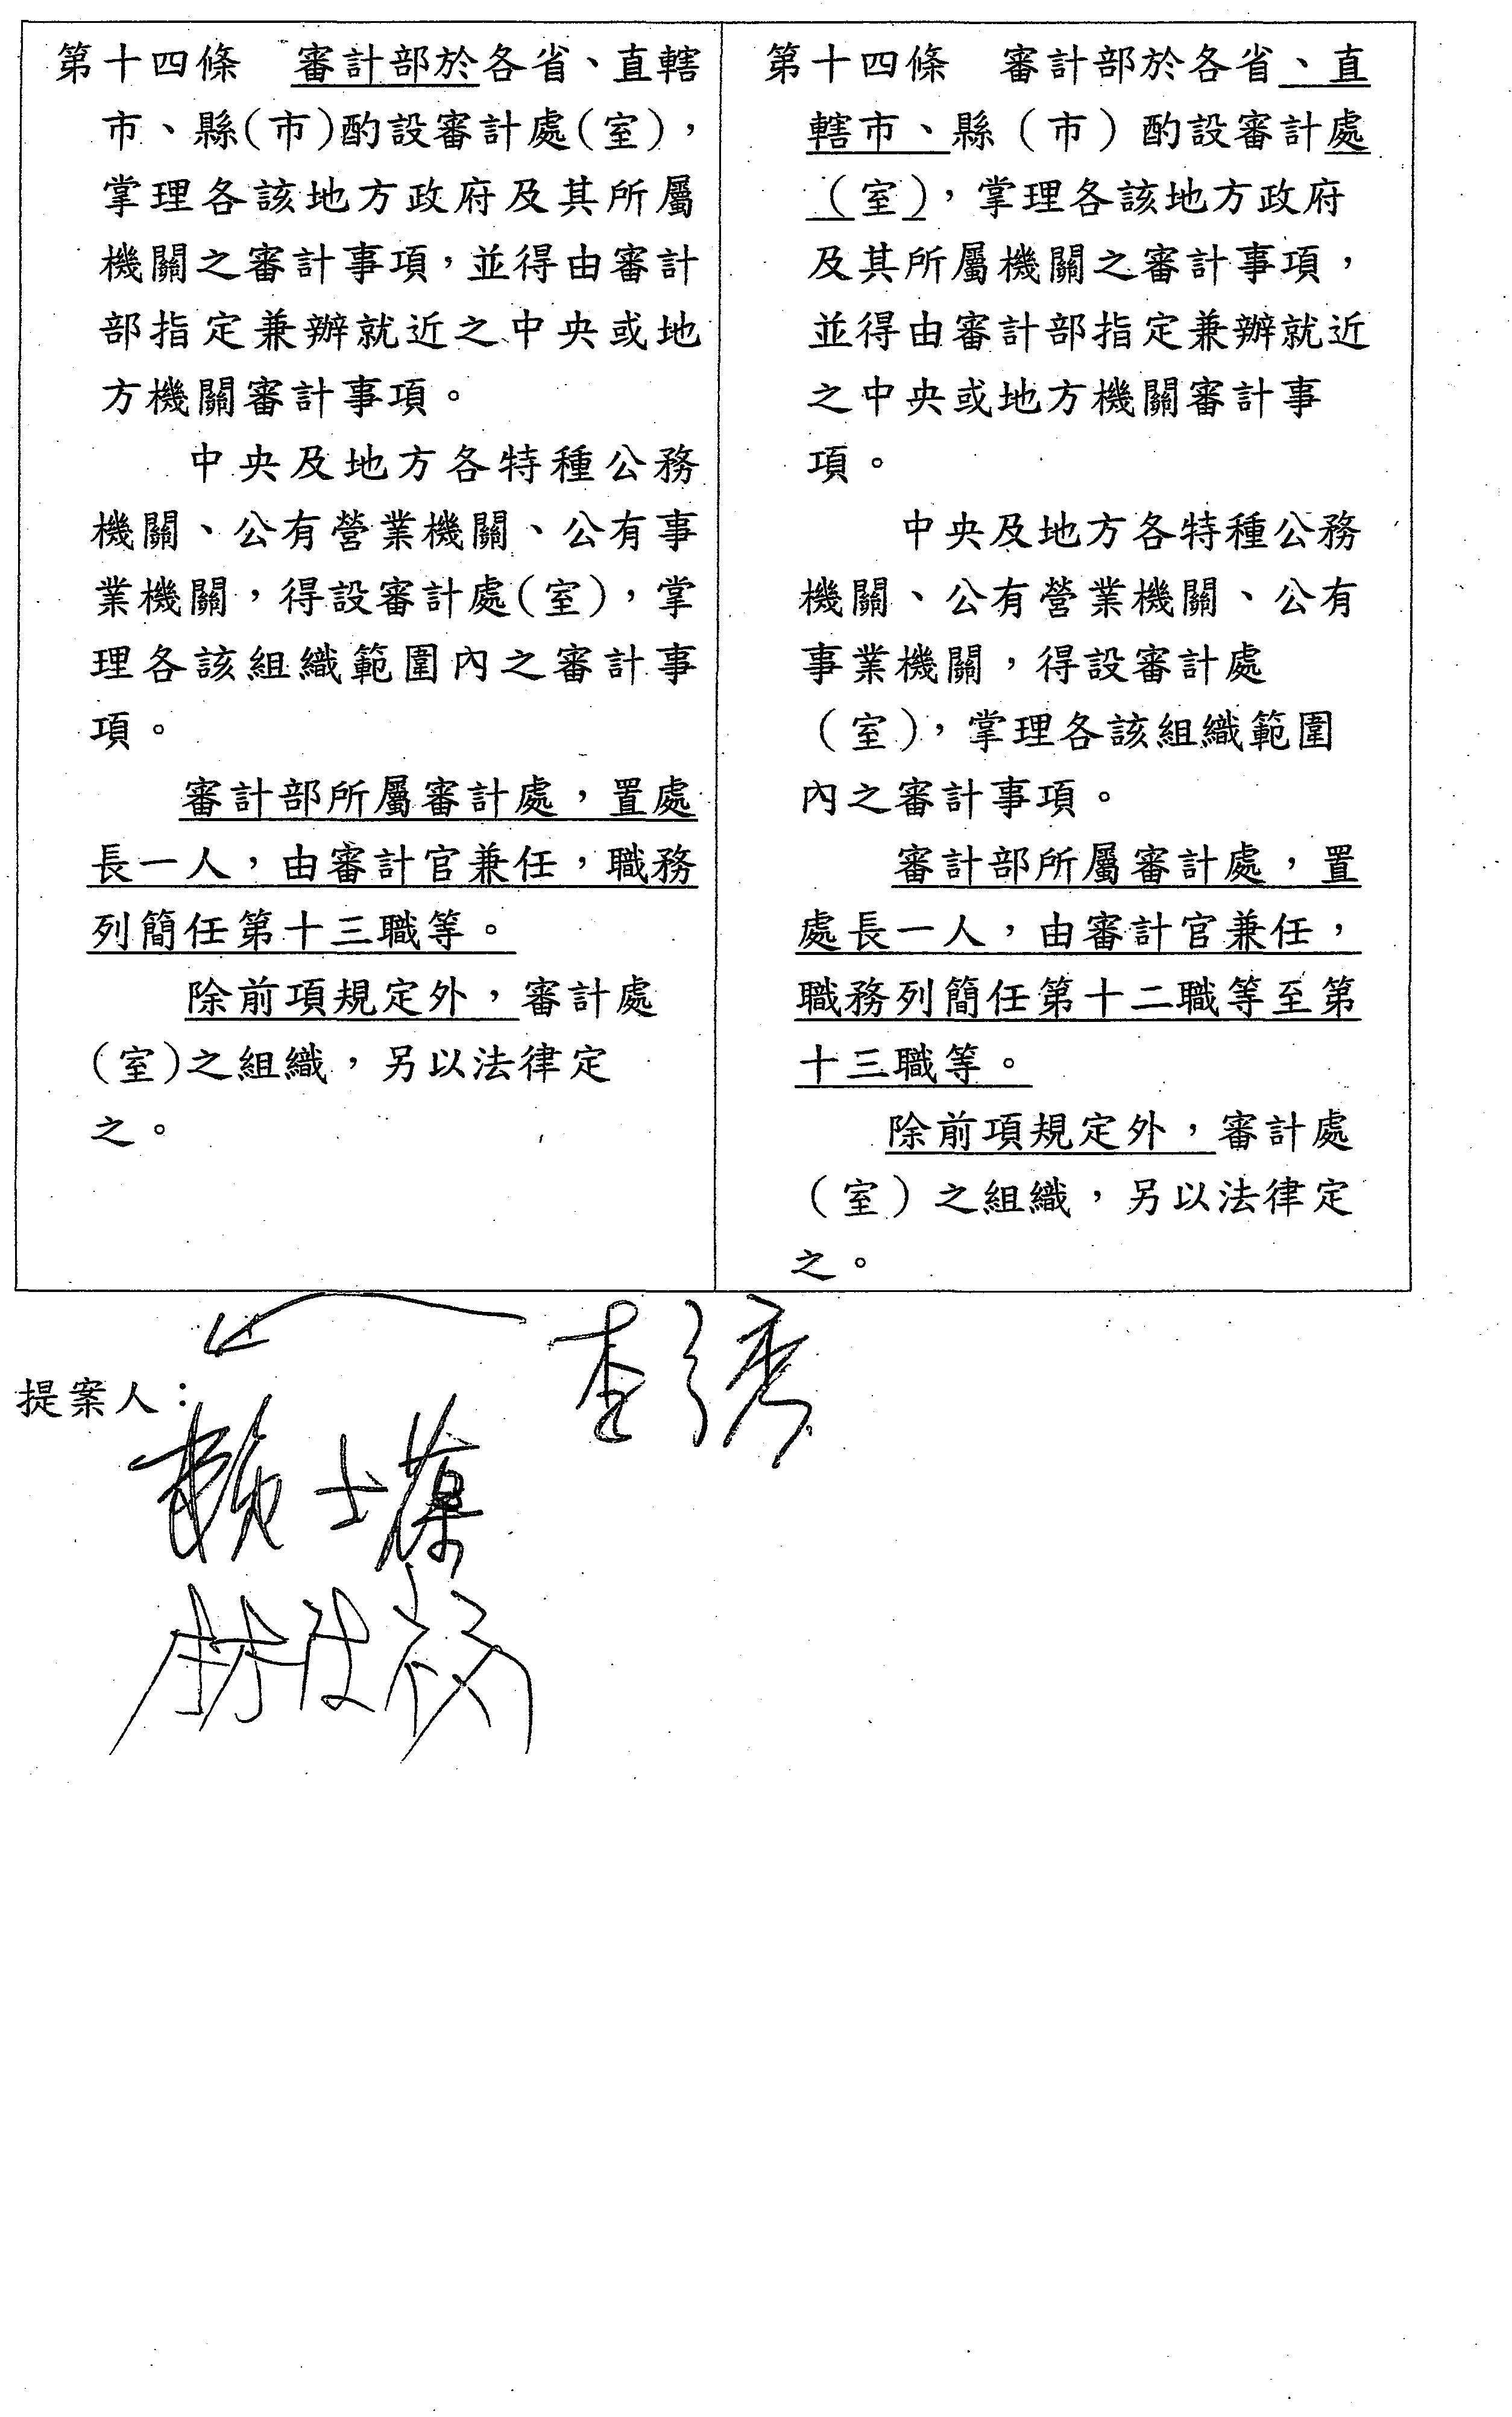 第十四條　審計部於各省、直轄
市、縣(市)酌設審計處(室)，
掌理各該地方政府及其所屬
機關之審計事項，並得由審計
部指定兼辦就近之中央或地
方機關審計事項。
中央及地方各特種公務
機關、公有營業機關、公有事
業機關，得設審計處(室)，掌
理各該組織範圍內之審計事
項。
審計部所屬審計處，置處
長一人，由審計官兼任，職務
列簡任第十三職等。
除前項規定外，審計處
(室)之組織，另以法律定
之。
第十四條　審計部於各省、直
轄市、縣（市）酌設審計處
（室），掌理各該地方政府
及其所屬機關之審計事項，
並得由審計部指定兼辦就近
之中央或地方機關審計事
項。
中央及地方各特種公務
機關、公有營業機關、公有
事業機關，得設審計處
（室），掌理各該組織範圍
內之審計事項。
審計部所屬審計處，置
處長一人，由審計官兼任，
職務列簡任第十二職等至第
十三職等。
除前項規定外，審計處
（室）之組織，另以法律定
之。
提案人：
賴士葆